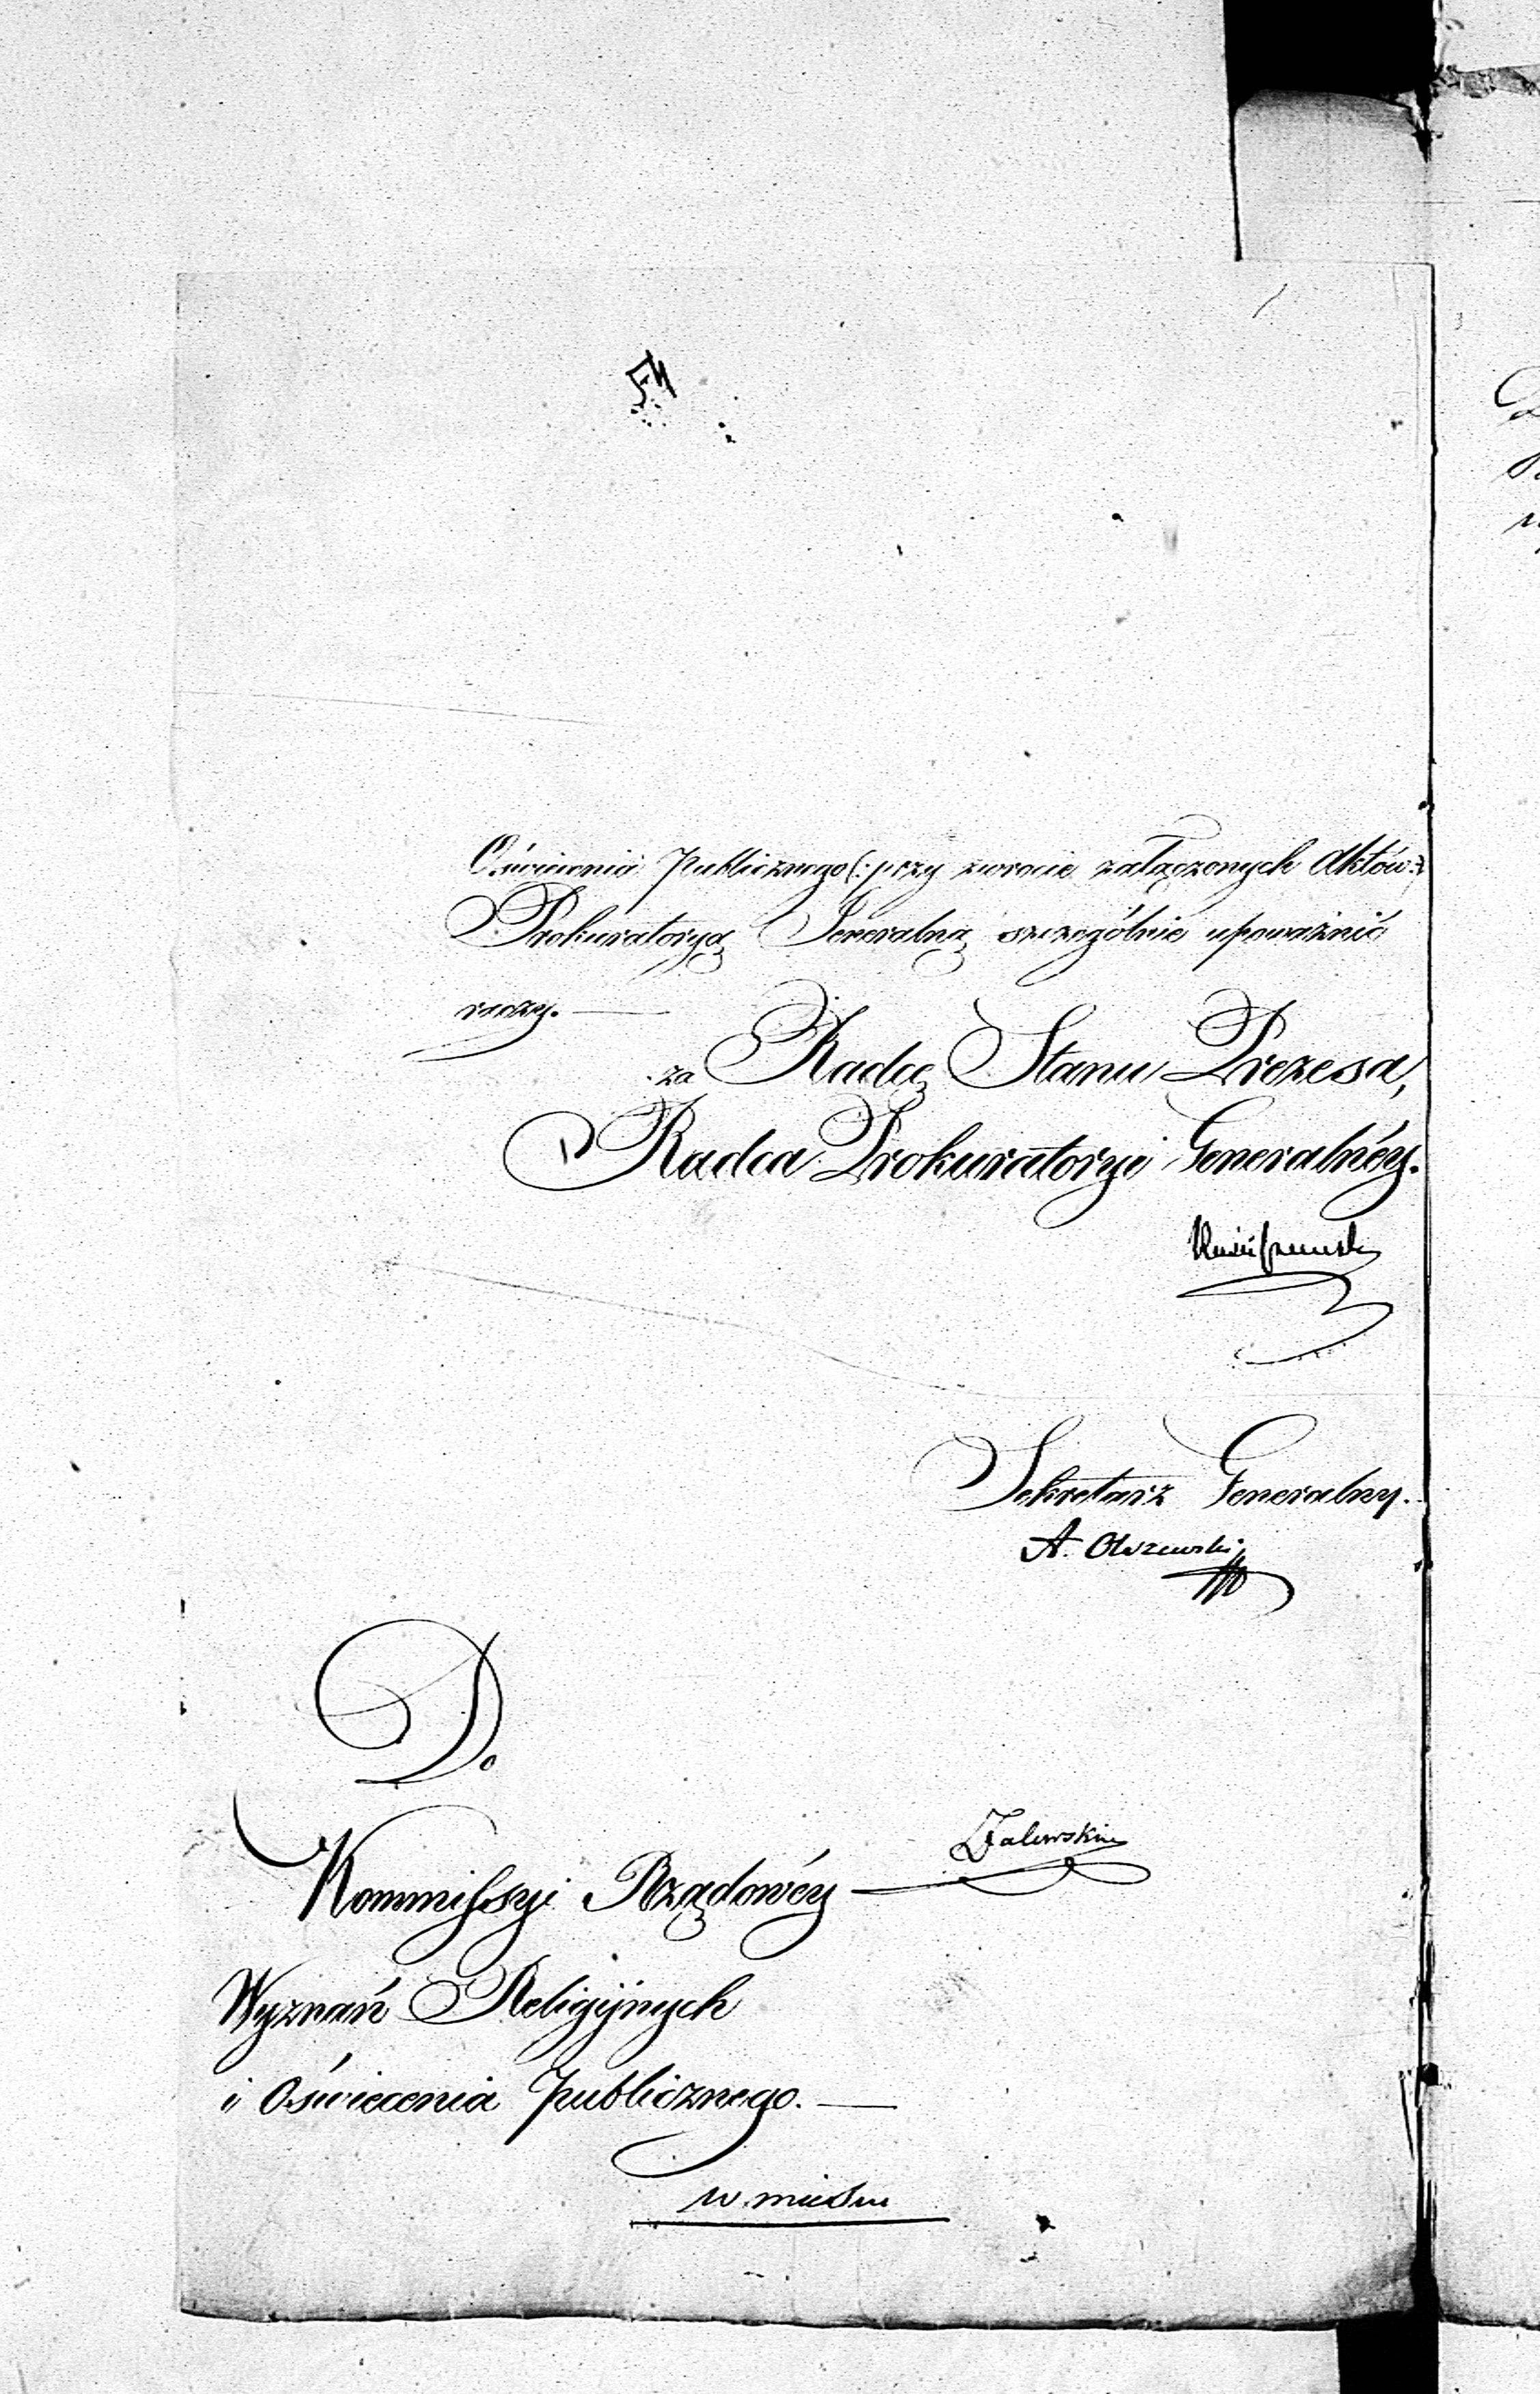 Oświecenia Publicznego (: przy zwrocie załączonych Aktów :)
Prokuratoryą Jeneralną szczególnie upoważnić
raczy. —
za Radcę Stanu Prezesa,
Radca Prokuratoryi Generalnéy.
Sekretarz Generalny.
A. Olszewski
Do
Kommissyi Rządowéy —
Zalewski
Wyznań Religijnych
i Oświecenia Publicznego. —
w mieście